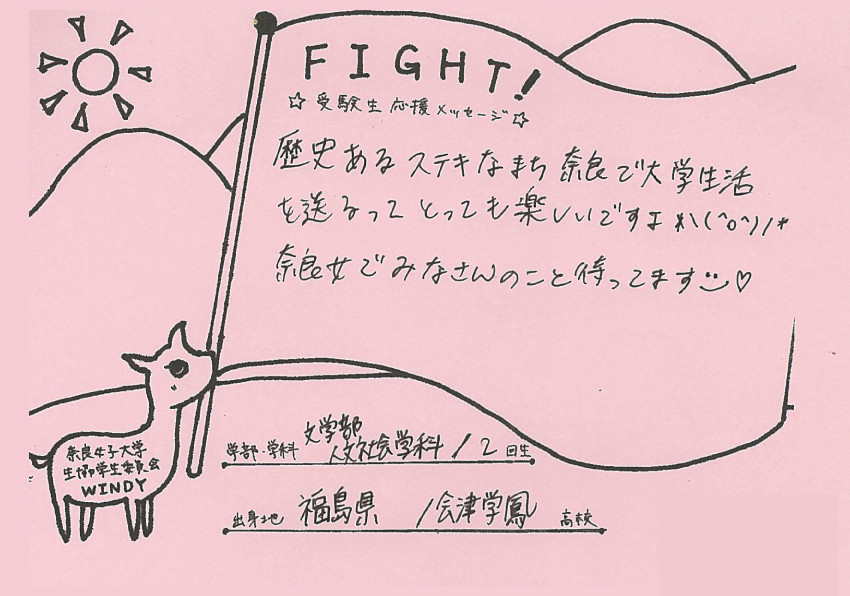 FIGHT!
☆受験生応援メッセージ☆
歴史あるステキなまち奈良で大学生活
を送るってとっても楽しいですよ*\(^o^)/*
奈良女でみなさんのこと待ってます♡
学部・学科 文学部 人文社会学科 / 2 回生
出身地 福島県 / 会津学鳳 高校
奈良女子大学
生協学生委員会
WINDY